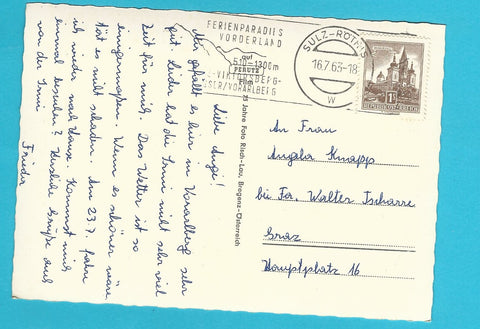 FERIENPARADIES
VORDERLAND
auf
500-1300m
PERUTZ
Film
-VIKTORSBERG-
SULZ-RÖTHIS
16.7.63-18
w
REPUBLIK ÖSTERREICH
Liebe Angi!
Mir gefällt es hier in Vorarlberg sehr
gut. Leider hat die Inni nicht sehr viel
Zeit für mich. Das Wetter ist so
einigermaßen. Wenn es schöner wäre
tät es nicht schaden. Am 23.7. fahre
ich wieder nach Hause. Kommst mich
einmal besuchen? Herzliche Grüße auch
von der Inni
Frieda
75 Jahre Foto Risch-Lau, Bregenz-Österreich
An Frau
Angela Knapp
bei Fa. Walter Tscharre
Graz
Hauptplatz 16